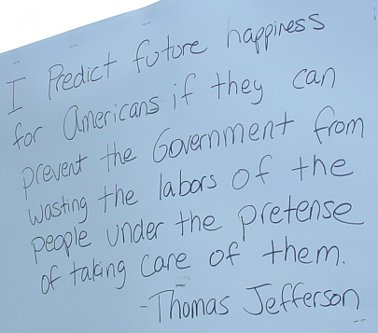 I Predict future happiness
for Americans if they can
prevent the Government from
wasting the labors of the
people under the pretense
of taking care of them.
-Thomas Jefferson